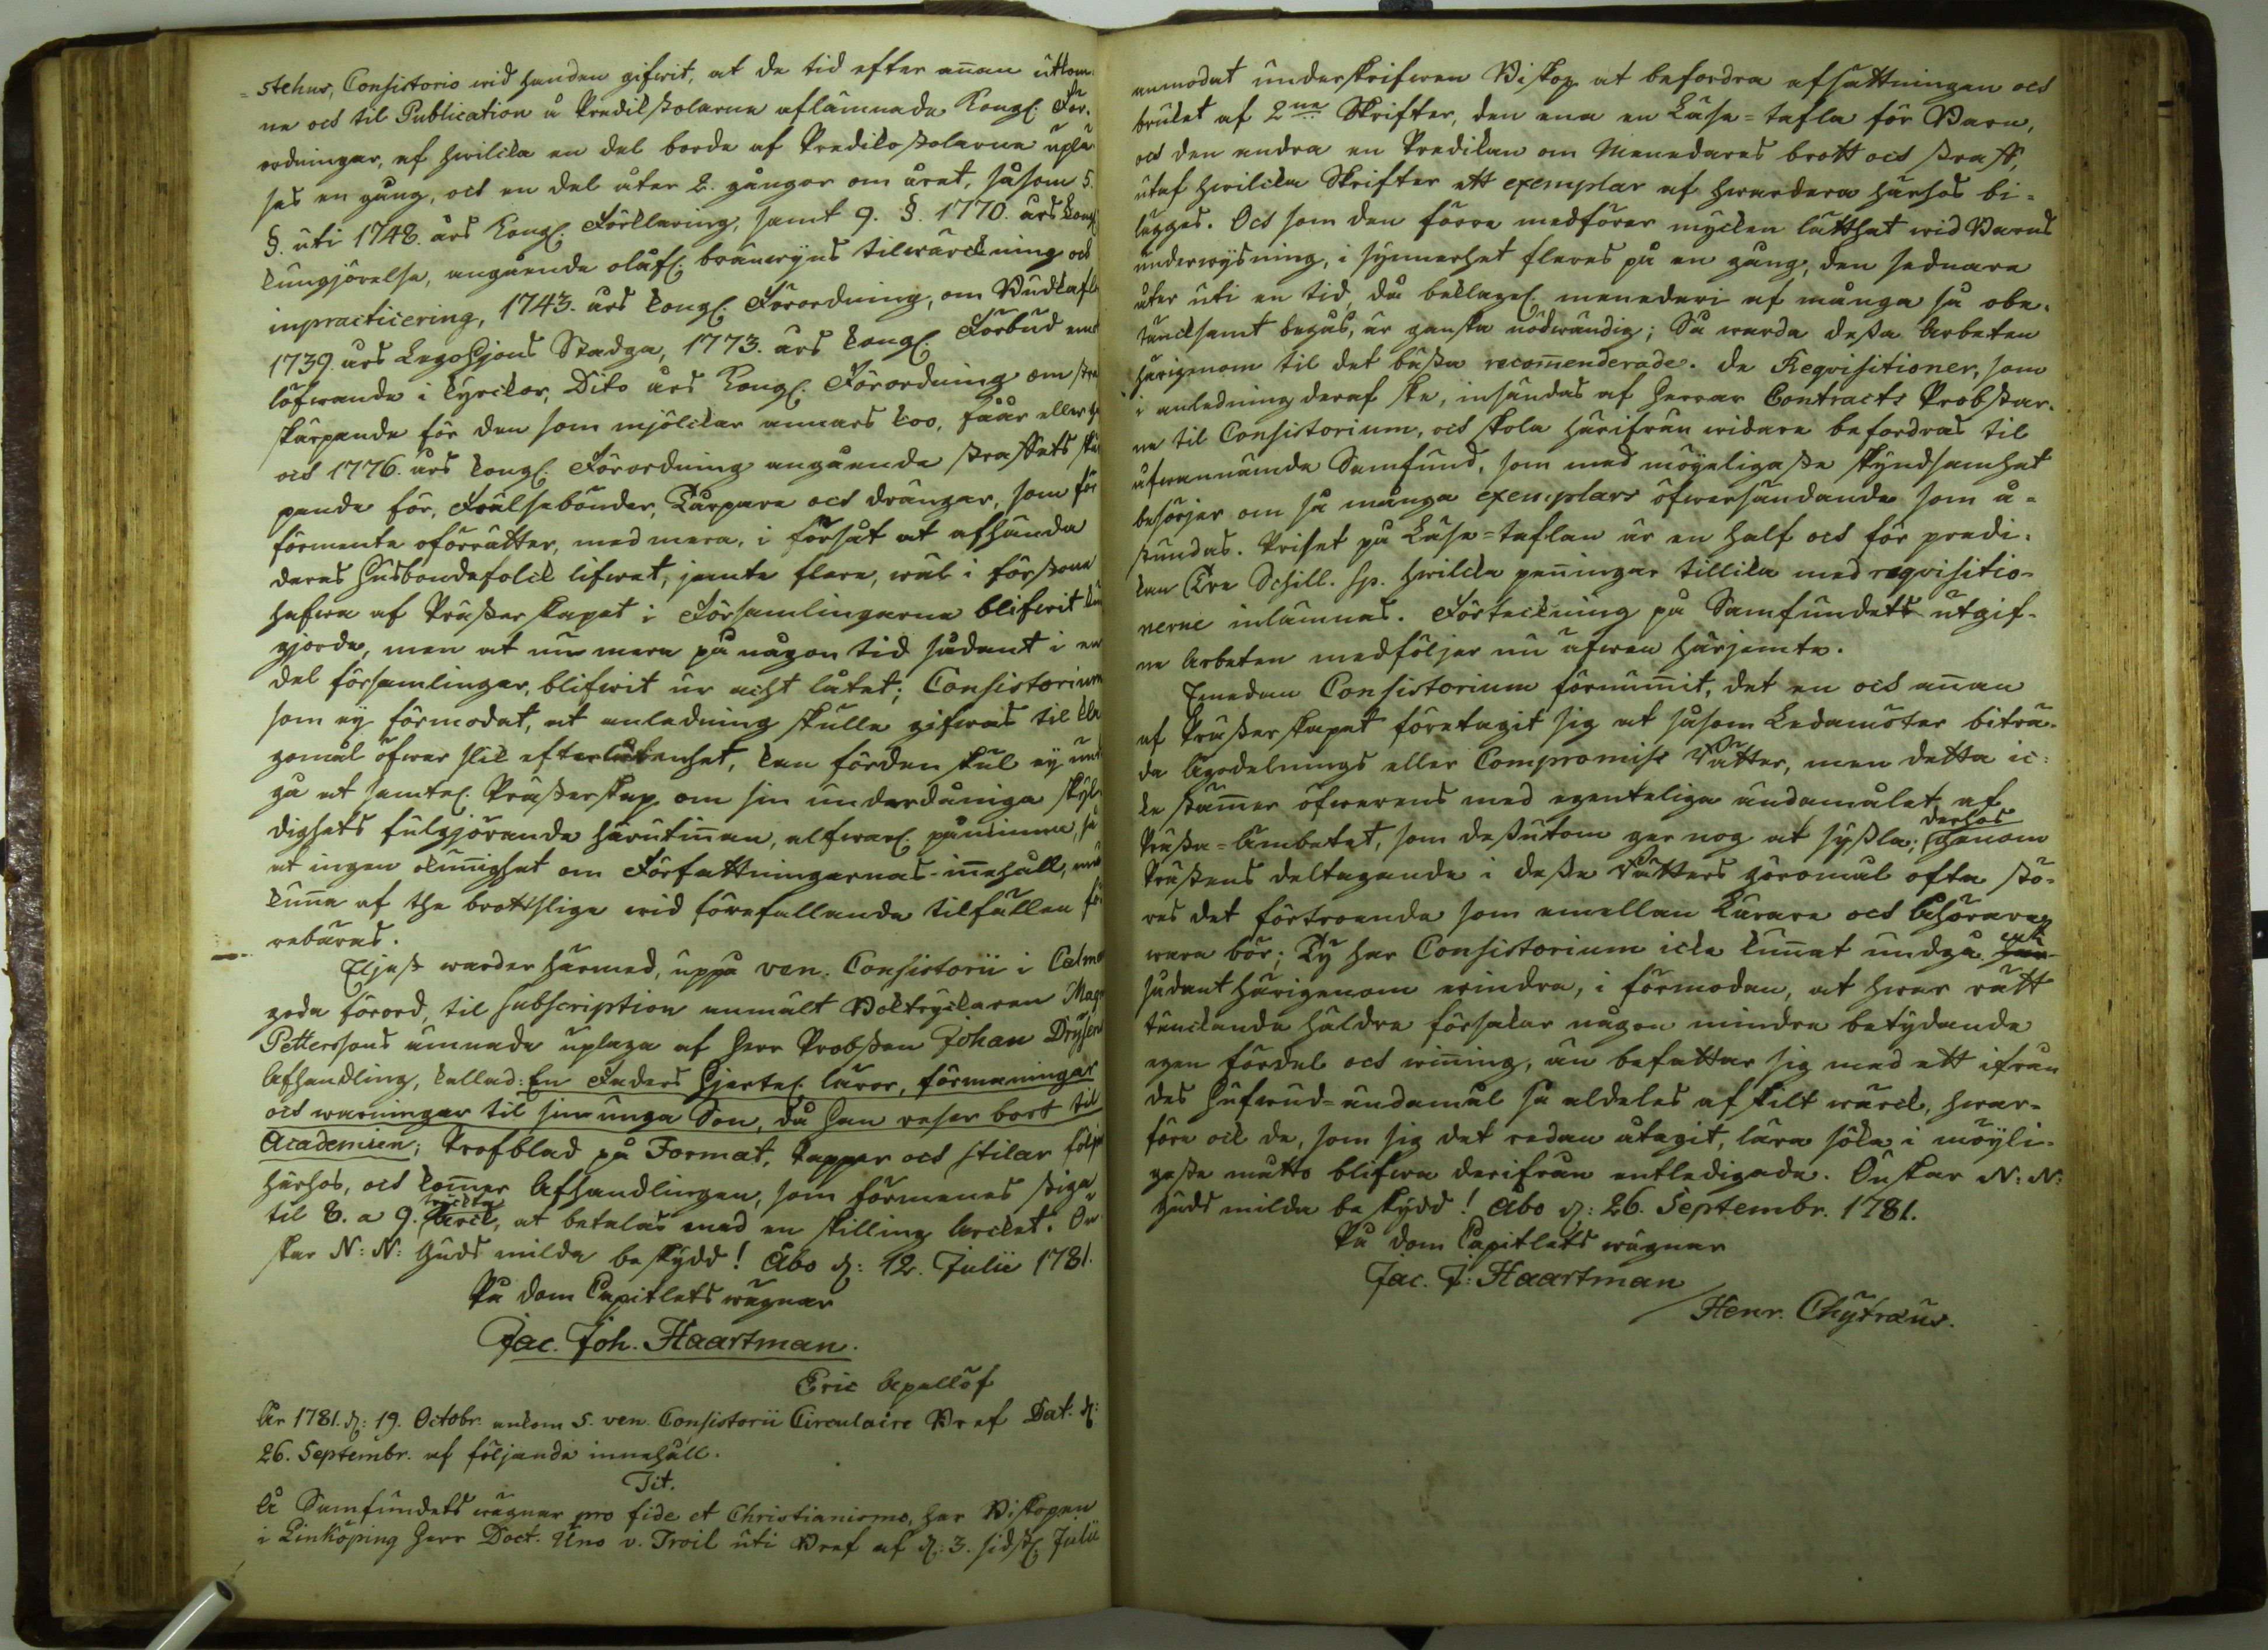 stehus, Consistorio wid handen gifwit, at de tid efter añan utkom¬
ne och til Publication å Predikstolarna aflämnade Kongl. För¬
ordningar, af hwilcka en del borde af Predikostolarna uplä¬
sas en gång, och en del åter 2. gångor om året, såsom 5.
§. uti 1748. års Kongl. Förklaring, samt 9. §. 1770. års Kongl.
kungjörelse, angående olåfl. bränwijns tilwärckning och
inpracticering, 1743. års Kongl. Förordning, om Budkafl
1739. års LegoHjons Stadga, 1773. års Kongl. Förbud emot
löfwande i kyrckor, Dito års Kongl. Förordning om stra
skärpande för den som mjölckar annars koo, fåår eller ge
och 1776. års Kongl. Förordning angående straffets skär
pande för, Frälsebönder, Tårpare och drängar, som för
förmente oförrätter, med mera, i försåt at afhända
deras husbondefolck lifwet, jemte flere, wäl i förstone
hafwa af Prästerskapet i Församlingarne blifwit kun
gjorde, men at nu mera på någon tid sådant i en
del församlingar, blifwit ur acht låtet; Consistorium
som ej förmodat, at anledning skulle gifwas til kla
gomål öfwer slik efterlåtenhet, kan förden skul ej und
gå at samtel. Prästerskap om sin underdåniga skyl
dighets fulgjörande härutiñan, alfwarl. påminna, så
at ingen okuñighet om Författningarnas iñehåll, må
kuña af the brottslige wid förefallande tilfällen fö
rebäras.
Eljest warder härmed, uppå ven. Consistorii i Calmar
goda förord, til subscription anmält Boktryckaren Magn
Petterssons ämnade uplaga af Herr Probsten Johan Drysens
Afhandling, kallad: En Faders Hjertel. läror, förmaningar
och warningar til sin unga Son, då han reser bort til
Academien; Profblad på Format, Papper och stilar följa
härhos, och komer Afhandlingen, som förmenes stiga
til 8. a 9. tryckta Arck, at betalas med en skilling Arcket. Ön
skar N: N: Guds milda beskydd! Åbo d: 12. Julii 1781.
På Dom Capitlets wägnar
Jac. Joh. Haartman.
Eric Apellöf
År 1781. d: 19. Octobr. ankom S. ven. Consistorii Circulaire Bref Dat. d:
26. Septembr. af följande innehåll.
Tit.
Å Samfundets wägnar pro fide et Christianismo, har Biskopen
i Linköping Herr Doct. Uno v. Troil uti Bref af d: 3. sidstl. Julii
anmodat underskrifwen Biskop at befordra afsättningen och
bruket af 2ne Skrifter, den ena en Läse=tafla för Barn,
och den andra en Predikan om Menedares brott och straff,
utaf hwilcka Skrifter ett exemplar af hwardera härhos bi=
lägges. Och som den förra medförer mycken lätthet wid Barns
underwysning, i synnerhet fleres på en gång, den sednare
åter uti en tid, då beklagel. menederi af många så obe¬
täncksamt begås, är ganska nödwändig; Så warda dessa Arbeten
härigenom til det bästa recom̃enderade. De Reqvisitioner, som
i anledning deraf ske, insändas af Herrar Contracts Probstar¬
ne til Consistorium, och skola härifrån widare befordras til
åfwannämde Samfund, som med möyeligaste skyndsamhet
besörjer om så många exemplars öfwersändande som å=
stundas. Priset på Läse=taflan är en half och för predi¬
kan Tre Schill. sp. hwilcka peñingar tillika med reqvisitio¬
nerne inlämnas. Förteckning på Samfundets utgif¬
ne Arbeten medföljer nu äfwen härjemte.
Emedan Consistorium förnum̃it, det en och añan
af Prästerskapet företagit sig at såsom Ledamöter biträ¬
da Ägodelnings eller Compromiss Rätter, men detta ic=
ke stäm̃er öfwerens med egenteliga ändamålet af
Prästa=Ämbetet, som dessutom ger nog at syssla; derhos genom
Prästens deltagande i desse Rätters göromål ofta stö¬
res det förtroende som emellan Lärare och Åhörare
wara bör; Ty har Consistorium icke kuñat undgå att
sådant härigenom erindra, i förmodan, at hwar rätt
tänckande häldre försakar någon mindre betydande
egen fördel och wiñing, än befattar sig med ett ifrån
des hufwud=ändamål så aldeles afskilt wärck, hwar¬
före ock de, som sig det redan åtagit, lära söka i möyli¬
gaste måtto blifwa derifrån entledigade. Önskar N: N:
Guds milda beskydd! Åbo d: 26. Septembr. 1781.
På Dom Capitlets wägnar
Jac. J: Haartman
Henr. Chyträus.